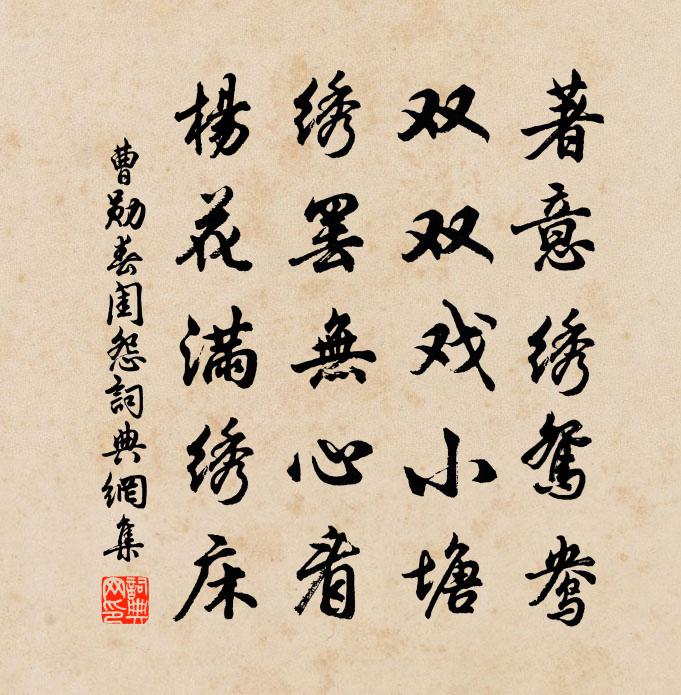 著意绣鸳鸯
双双戏小塘
绣罢無心看
楊花满绣床
曹勋春闺怨詞典網集
詞典網印